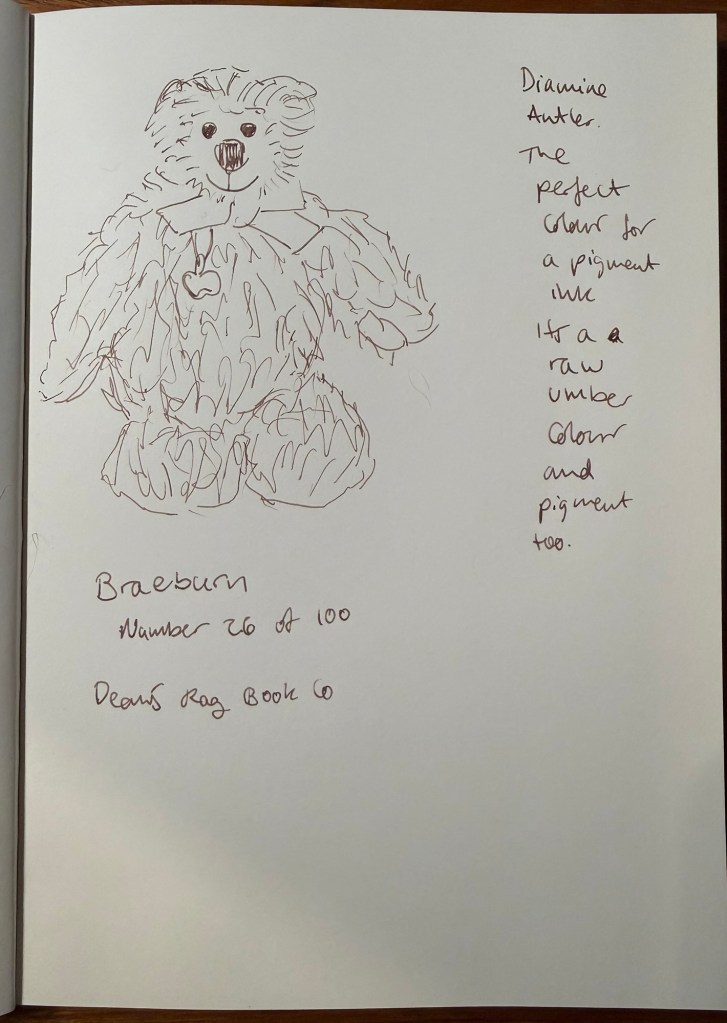 Diamine
Antler.
The
perfect
colour for
a pigment
ink
Its a a
raw
umber
colour
and
pigment
too.
Braeburn
Number 26 of 100
Dean's Rag Book Co